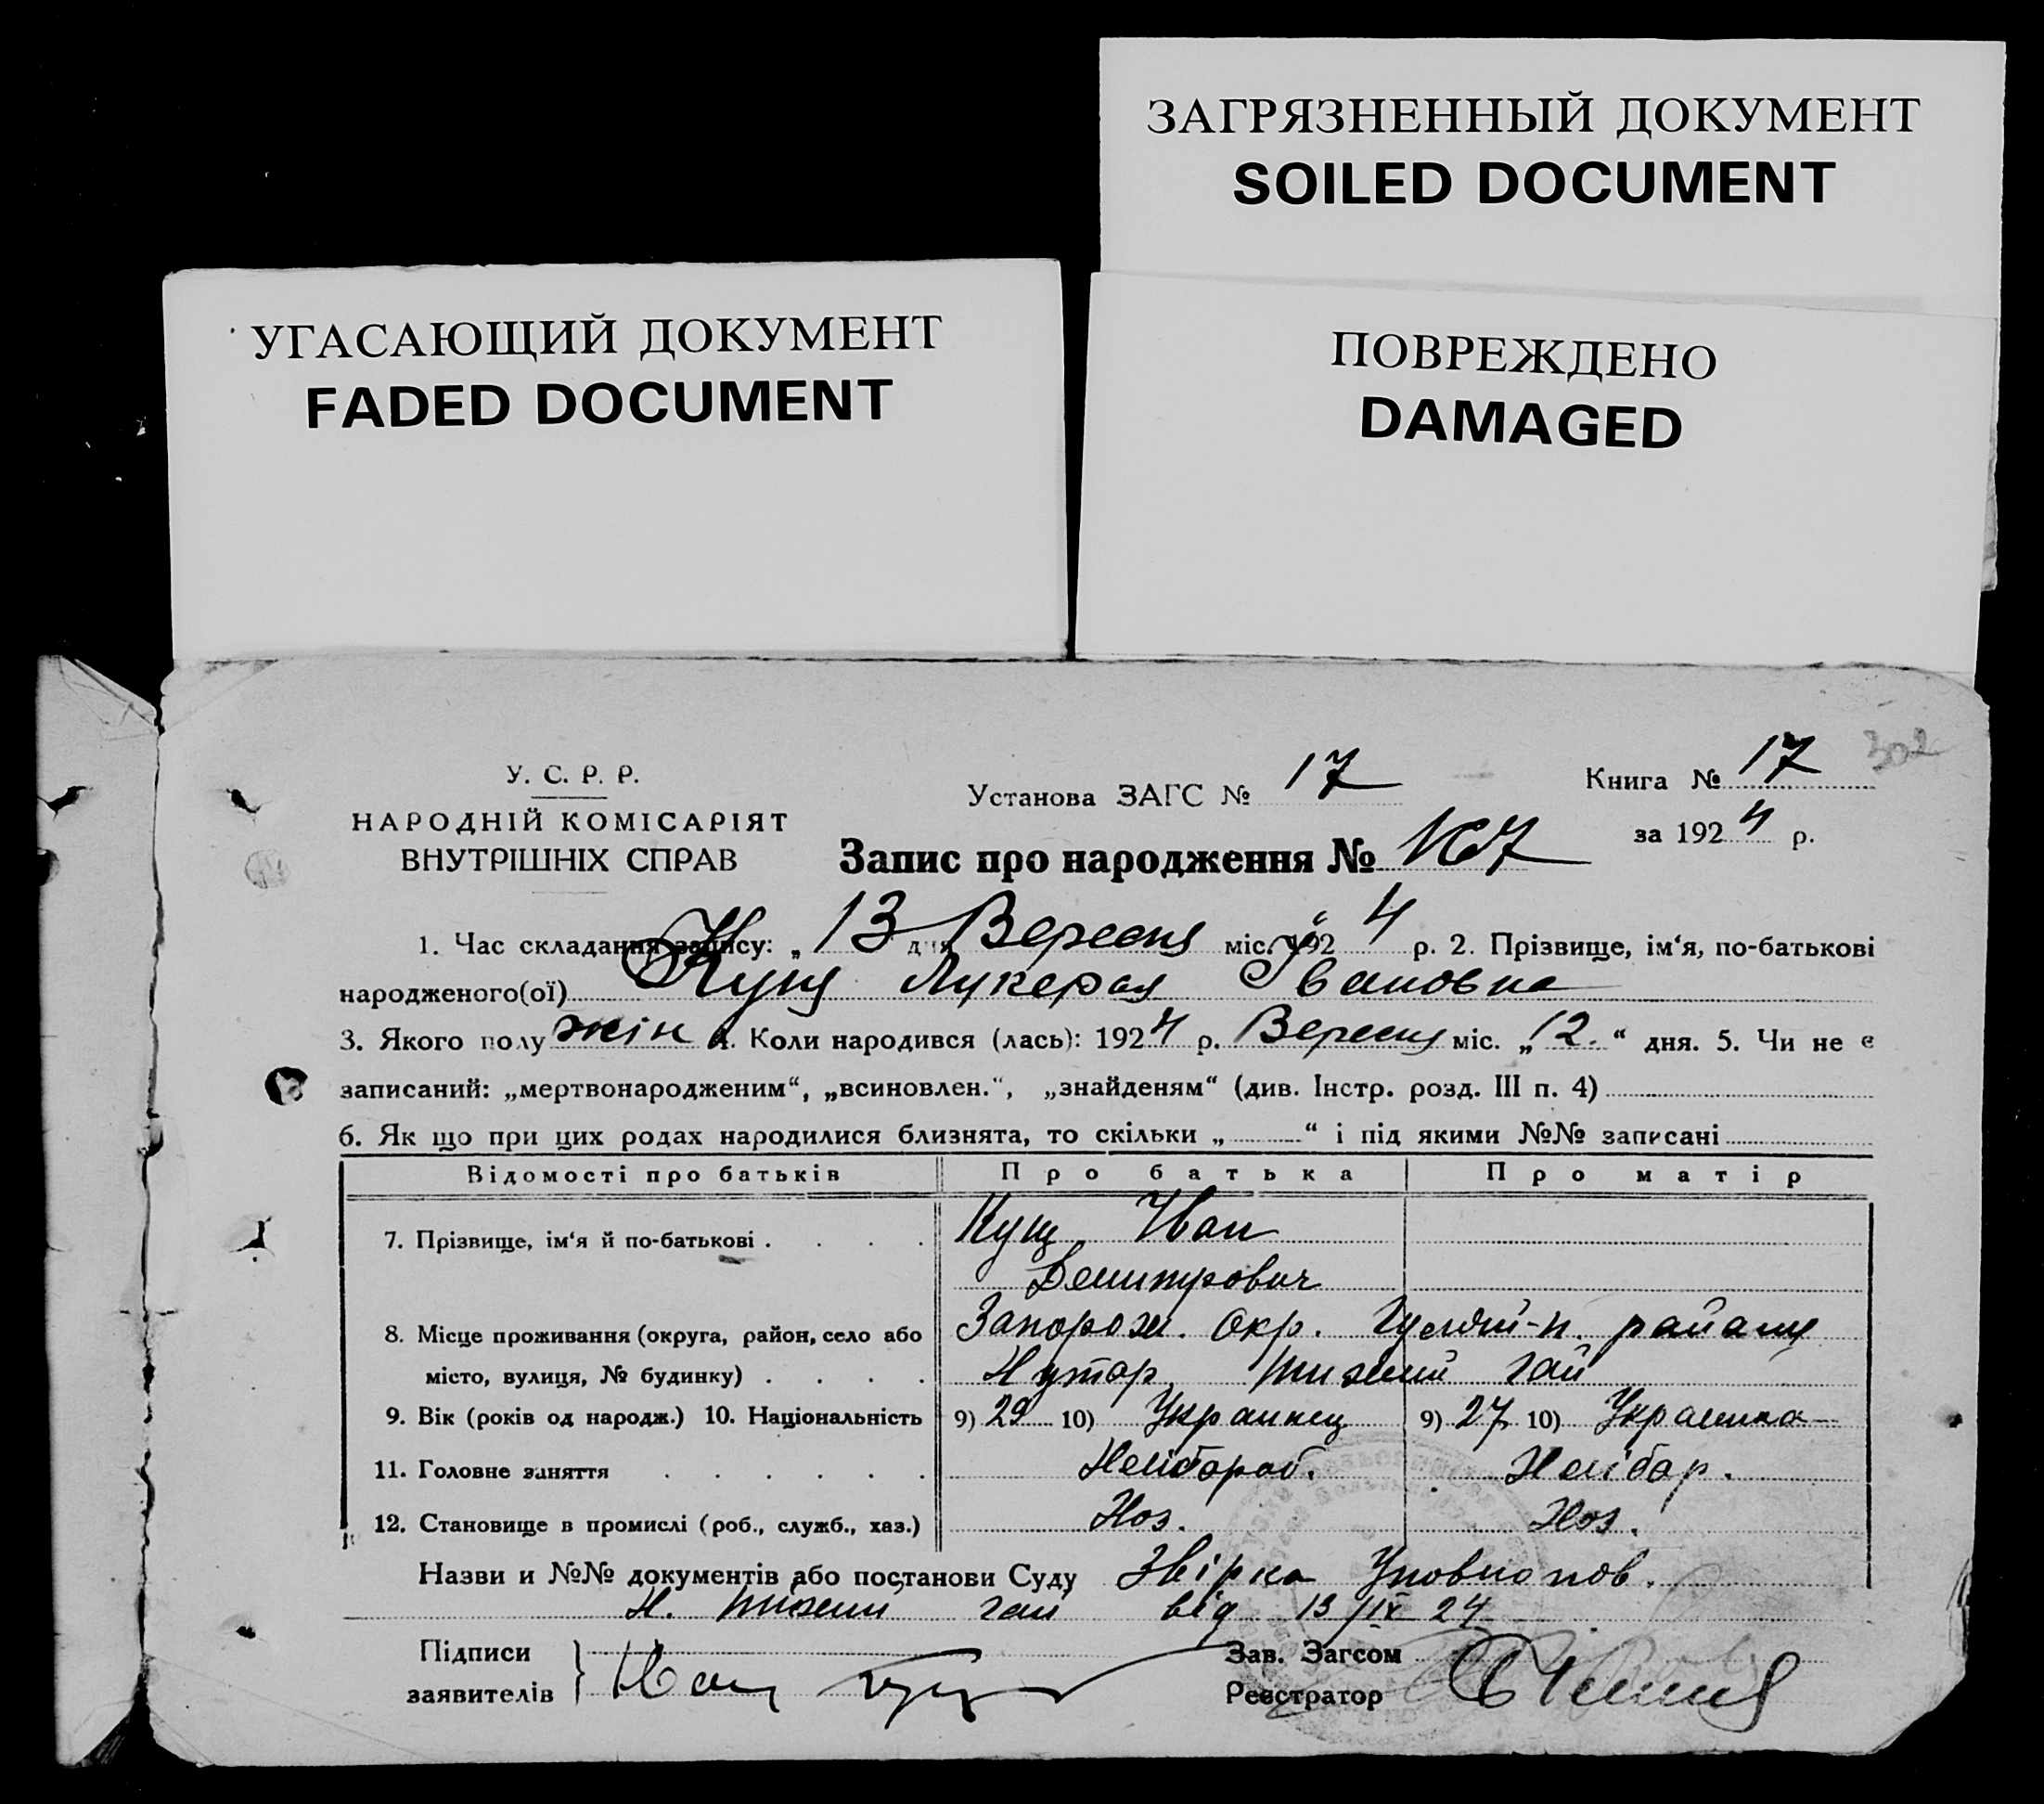 ЗАГРЯЗНЕННЫЙ ДОКУМЕНТ
SOILED DOCUMENT
УГАСАЮЩИЙ ДОКУМЕНТ
FADED DOCUMENT
ПОВРЕЖДЕНО
DAMAGED
302
У. С. Р. Р.
НАРОДНІЙ КОМІСАРІЯТ
ВНУТРІШНІХ СПРАВ
Установа ЗАГС № 17
Книга № 17
за 1924 р.
Запис про народження № 167
1. Час складання запису: „ 13 дня Вересня міс. 1924 р. 2. Прізвище, ім‘я, по-батькові
народженого(ої) Кущ Лукерая Івановна
3. Якого полу жін 4. Коли народився (лась): 1924 р. Вересня міс. „12.“ дня. 5. Чи не є
записаний: „мертвонародженим“, „всиновлен.“, „знайденям“ (див. Інстр. розд. III п. 4)
6. Як що при цих родах народилися близнята, то скільки „ “ і під якими №№ записані
Відомості про батьків Про батька Про матір
7. Прізвище, ім‘я й по-батькові Кущ Иван
Демитрович
8. Місце проживання (округа, район, село або Запорож. Окр. Гуляй-п. району
місто, вулиця, № будинку) Хутор гай
9. Вік (років од народж.) 10. Національність 9) 29 10) Украинец 9) 27 10) Украинка
11. Головне заняття Хлібороб. Хлібор.
12. Становище в промислі (роб., служб., хаз.) Хоз. Хоз.
Назви и №№ документів або постанови Суду Упovнопов.
Х. гай від 13/IX 24
Підписи
заявителів Иван Кущ
Зав. Загсом
Реєстратор